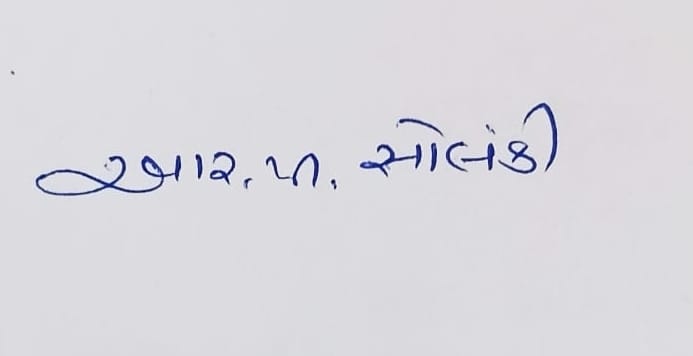 આર. પી. સોલંકી